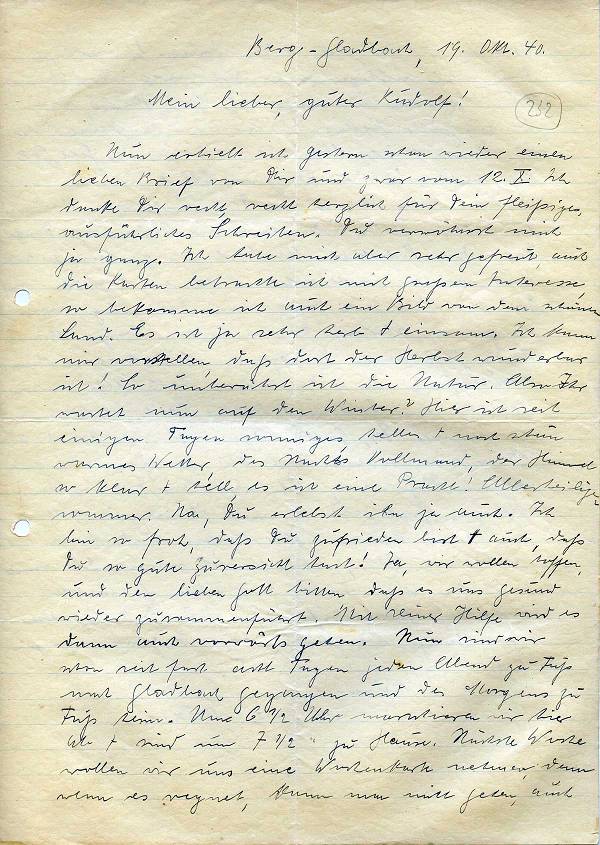 Berg.-Gladbach, 19. Okt. 40.
Mein lieber, guter Rudolf!
232
Nun erhielt ich gestern schon wieder einen
lieben Brief von Dir und zwar vom 12. X. Ich
danke Dir recht, recht herzlich für Dein fleißiges,
ausführliches Schreiben. Du verwöhnst mich
ja ganz. Ich habe mich aber sehr gefreut, auch
die Karten betrachte ich mit großem Interesse,
so bekomme ich auch ein Bild von dem schönen
Land. Es ist ja sehr herb + einsam. Ich kann
mir vorstellen, daß dort der Herbst wunderbar
ist! So unberührt ist die Natur. Also Ihr
wartet nun auf den Winter? Hier ist seit
einigen Tagen sonniges helles + noch schön
warmes Wetter, des Nachts Vollmond, der Himmel
so klar + hell, es ist eine Pracht! Allerheiligen-
sommer. Na, Du erlebst ihn ja auch. Ich
bin so froh, daß Du zufrieden bist + auch, daß
Du so gute Zuversicht hast! Ja, wir wollen hoffen,
und den lieben Gott bitten, daß er uns gesund
wieder zusammenführt. Mit seiner Hilfe wird es
dann auch vorwärts gehen. Nun sind wir
schon seit fast acht Tagen jeden Abend zu Fuß
nach Gladbach gegangen und des Morgens zu
Fuß heim. Um 6 1/2 Uhr marschieren wir hier
ab + sind um 7 1/2 " zu Hause. Nächste Woche
wollen wir uns eine Wochenkarte nehmen, denn
wenn es regnet, kann man nicht gehen, auch